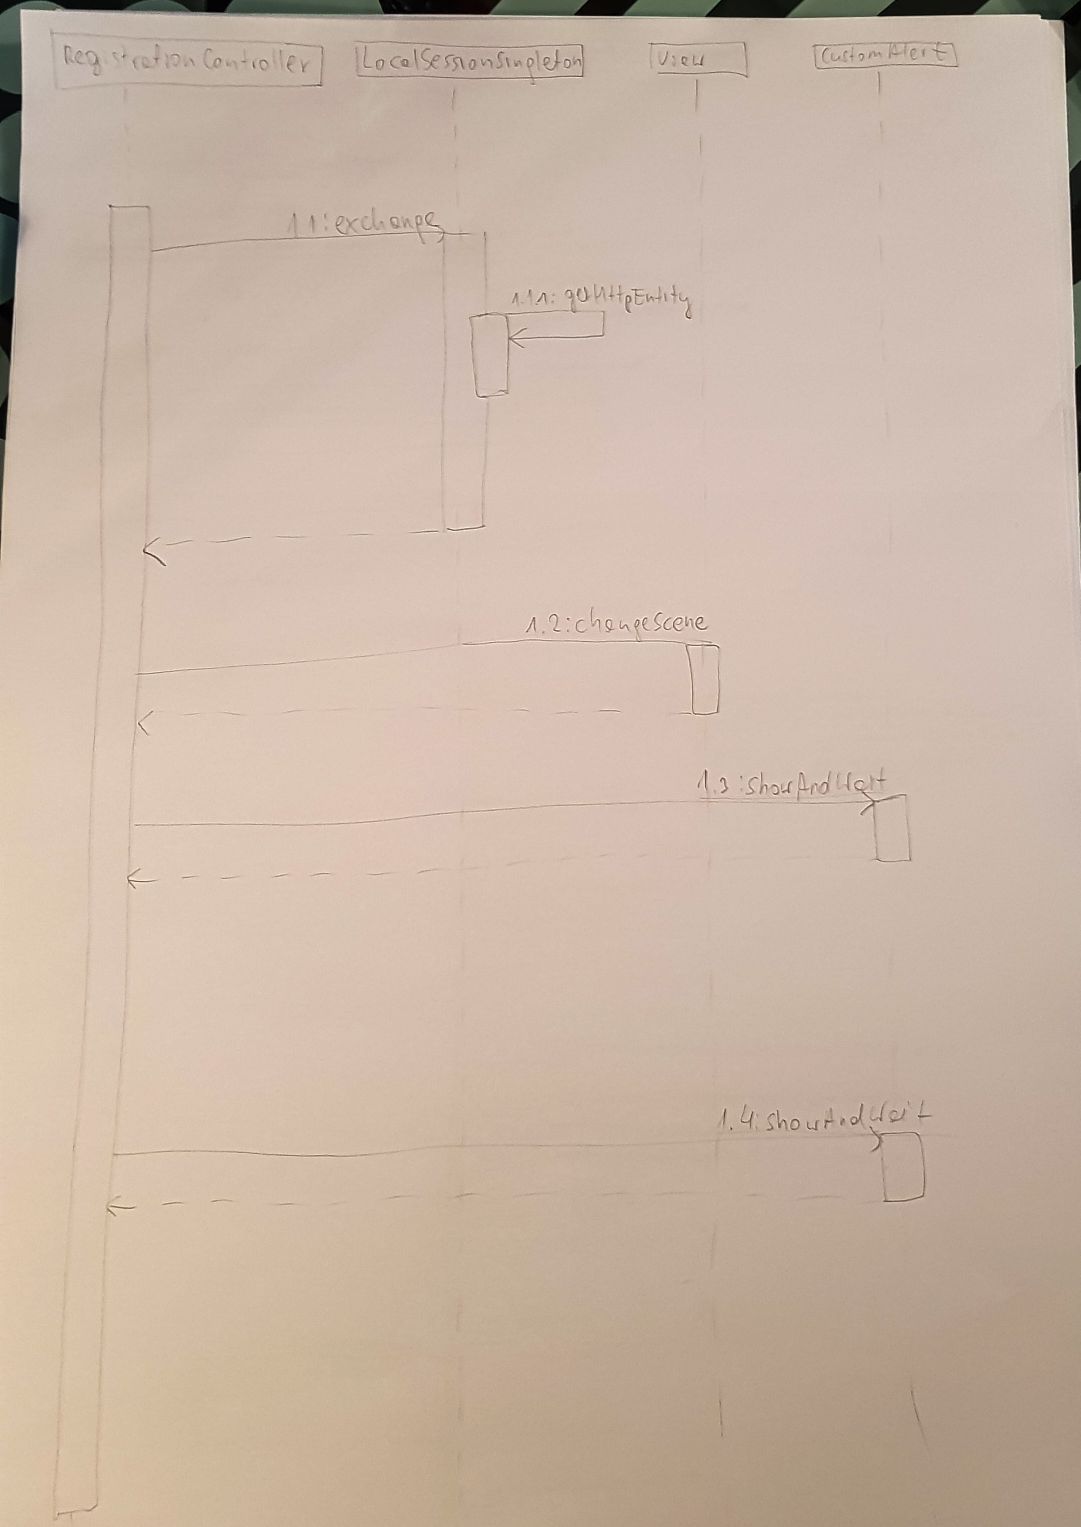 RegistrationController
LocalSessionSingleton
View
CustomAlert
1.1:exchange
1.1.1: getHttpEntity
1.2:changeScene
1.3:showAndWait
1.4:showAndWait